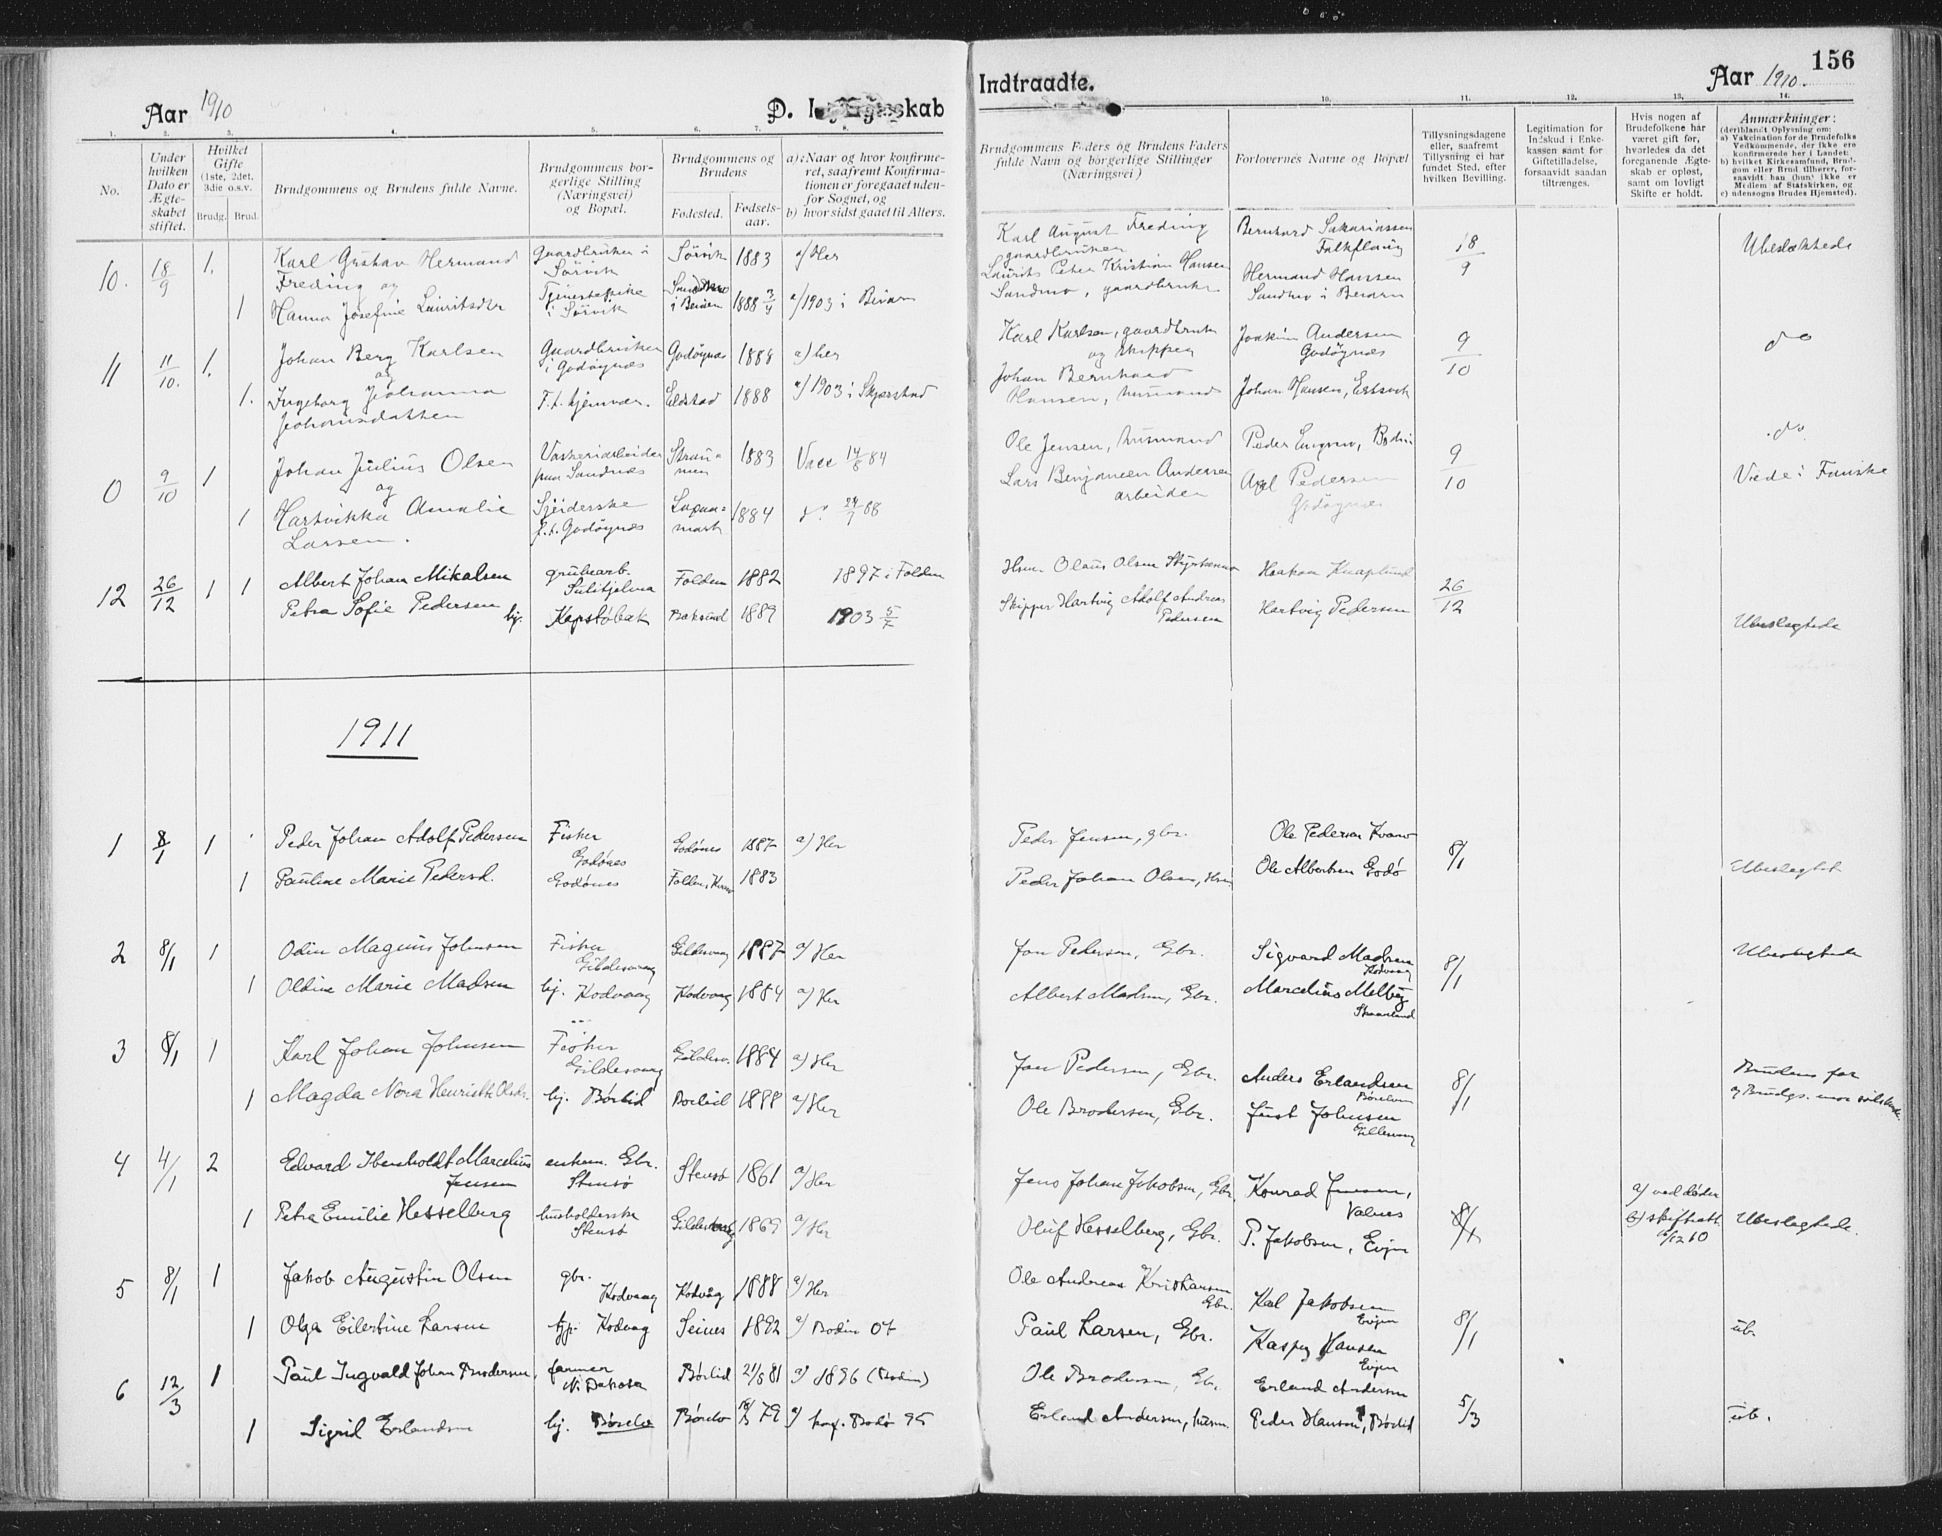 Aar 1910
D. I Ægteskab
Indtraadte.
Aar 1910.
156
1. 2. 3. 4. 5. 6. 7. 8. 10. 11. 12. 13. 14.
No.
Under hvilken Dato er Ægteskabet stiftet.
Hvilket Gifte (1ste, 2det, 3die o.s.v.
Brudg. Brud.
Brudgommens og Brudens fulde Navne.
Brudgommens borgerlige Stilling (Næringsvei) og Bopæl.
Brudgommens og Brudens
Fødested. Fødselsaar.
a) Naar og hvor konfirmeret, saafremt Konfirmationen er foregaaet udenfor Sognet, og
b) hvor sidst gaaet til Alters.
Brudgommens Faders og Brudens Faders fulde Navn og borgerlige Stillinger (Næringsvei)
Forlovernes Navne og Bopæl
Tillysningsdagene eller, saafremt Tillysning ei har fundet Sted, efter hvilken Bevilling.
Legitimation for Indskud i Enkekassen samt for Giftetilladelse, forsaavidt saadan tiltrænges.
Hvis nogen af Brudefolkene har været gift før, hvorledes da det foregaaende Ægteskab er opløst, samt om lovligt Skifte er holdt.
Anmærkninger:
(deriblandt Oplysning om:
a) Vakcination for de Brudefolks Vedkommende, der ikke ere konfirmerede her i Landet;
b) hvilket Kirkesamfund, Brudgom eller Brud tilhører, forsaavidt han (hun) ikke er Medlem af Statskirken, og
c) udensogns Brudes Hjemsted).
10. 18/9 1. Karl Gustav Hermand Freding og Gaardbruker i Sørvik Sørvik 1883 a) Her Karl August Freding gaardbruker Bernhard Sakariassen Falkflaug 18/9 Ubeslektede
1 Hanna Josefine Lauritsdtr Tjenestepike i Sørvik Sandmo i Beiarn 1888 3/4 a) 1903 i Beiarn Laurits Peter Kristian Hansen Sandmo, gaardbruker Hermand Hansen Sandmo i Beiarn
11 11/10. 1. Johan Berg Karlsen og Gaardbruker i Godøynæs Godøynæs 1888 a) her Karl Karlsen, gaardbruker og skipper Joakim Andersen Godøynæs 9/10 do
1. Ingeborg Johanna Johansdatter F.t. hjemvær. Eldstad 1888 a) 1903 i Skjerstad Johan Bernhard Hansen, husmand Johan Hansen,
0 9/10 1 Johan Julius Olsen og Vaskeriarbeider paa Sandnæs Straumen 1883 Vacc 14/8 84 Ole Jensen, husmand Peder Bodin 9/10 do
1 Hartvikka Amalie Larsen. Sjeiderske p.t. Godøynæs 1884 do 24/7 88 Lars Benjameen Andersen arbeider Axel Pedersen Godøynæs Viede i Fauske
12 26/12 1 1 Albert Johan Mikalsen grubearb. Sulitjelma Folden 1882 1897 i Folden Olaus Olsen Haakon Knaplund 26/12
Petra Sofie Pedersen hj. Kapstøbak Baksund 1889 1903 5/7 Skipper Hartvig Adolf Andreas Pedersen Hartvig Pedersen Ubeslegtede
1911
1 8/1 1 Peder Johan Adolf Pedersen Fisker Godønes Godønes 1887 a) Her Peder Jensen, gbr. Ole Pedersen Kvarv 8/1
1 Pauline Marie Pedersd. Godønes Folden, 1883 Peder Johan Olsen, Ole Albertsen Godø Ubeslegtet
2 8/1 1 Odin Magnus Johnsen Fisker Gildesvaag Gildesvaag 1887 a) Her Jon Pedersen, Gbr. Sigvard Madsen Kodvaag 8/1 Ubeslegtede
1 Oldine Marie Madsen hj. Kodvaag Kodvaag 1884 a) Her Albert Madsen, Gbr. Marcelius Melbye Skaanland
3 8/1 1 Karl Johan Johnsen Fisker Gildesvaag Gildesv. 1884 a) Her Jon Pedersen, Gbr. Anders Erlandsen 8/1 Brudens far
1 Magda Nora Henriette Olsdtr. hj. Børlid Børlid 1888 a) Her Ole Brodersen, Gbr. Just Johnsen Gildesvaag og Brudgs. mor
4 4/1 2 Edvard Ibenholdt Marcelius Jensen enkem. Gbr. Stensø Stensø 1861 a) Her Jens Johan Jakobsen, Gbr. Konrad Jensen, Valnes 8/1 a) ved døden
1 Petra Emilie Hesselberg husholderske Stensø Gildesvaag 1869 a) Her Oluf Hesselberg, Gbr. P. Jakobsen, Evjen b) skifteatt. 6/12 10 Ubeslegtede.
5 8/1 1 Jakob Augustin Olsen gbr. Kodvaag Kodvåg 1888 a) Her Ole Andreas Kristiansen Gbr. Karl Jakobsen Evjen 8/1
1 Olga Eilertine Larsen tjp. Kodvag Seines 1892 a) Bodin 07 Paul Larsen, Gbr. Kasper Hansen Evjen ub.
6 12/3 1 Paul Ingvald Johan Brodersen, farmer N. Dakota Børlid 21/8 81 a) 1896 (Bodin) Ole Brodersen, Gbr. Erland Andersen 5/3
1 Sigrid Erlandsen hj. Børelv Børelv 79 a) konf. Bodø 95 Erland Andersen, husm. Peder Hanson, Børlid ub.